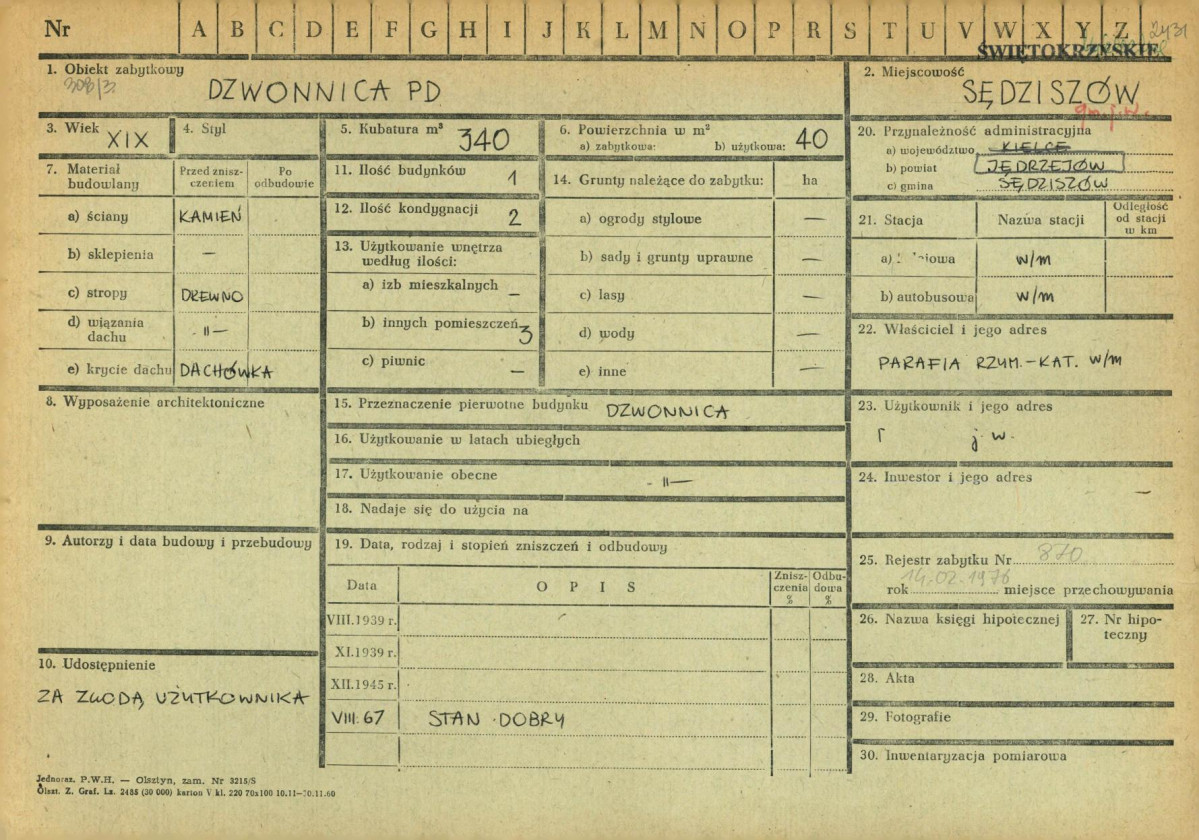 Nr A B C D E F G H I J K L M N O P R S T U V W X Y Z 2431
ŚWIĘTOKRZYSKIE
1. Obiekt zabytkowy
DZWONNICA PD
2. Miejscowość
SĘDZISZÓW
3. Wiek XIX
4. Styl
5. Kubatura m³ 340
6. Powierzchnia w m²
a) zabytkowa: b) użytkowa: 40
7. Materiał budowlany
Przed zniszczeniem
Po odbudowie
a) ściany KAMIEŃ
b) sklepienia —
c) stropy DREWNO
d) wiązania dachu -"-
e) krycie dachu DACHÓWKA
8. Wyposażenie architektoniczne
9. Autorzy i data budowy i przebudowy
10. Udostępnienie
ZA ZGODĄ UŻYTKOWNIKA
11. Ilość budynków 1
12. Ilość kondygnacji 2
13. Użytkowanie wnętrza
według ilości:
a) izb mieszkalnych —
b) innych pomieszczeń 3
c) piwnic —
14. Grunty należące do zabytku: ha
a) ogrody stylowe —
b) sady i grunty uprawne —
c) lasy —
d) wody —
e) inne —
15. Przeznaczenie pierwotne budynku DZWONNICA
16. Użytkowanie w latach ubiegłych
17. Użytkowanie obecne -"-
18. Nadaje się do użycia na
19. Data, rodzaj i stopień zniszczeń i odbudowy
Data OPIS Zniszczenia % Odbudowa %
VIII.1939 r.
XI.1939 r.
XII.1945 r.
VIII.67 STAN DOBRY
20. Przynależność administracyjna
a) województwo KIELCE
b) powiat JĘDRZEJÓW
c) gmina SĘDZISZÓW
21. Stacja Nazwa stacji Odległość od stacji w km
w/m
b) autobusowa w/m
22. Właściciel i jego adres
PARAFIA RZYM.-KAT. w/m
23. Użytkownik i jego adres
j.w.
24. Inwestor i jego adres
—
25. Rejestr zabytku Nr 870
rok 14.02.1976 miejsce przechowywania
26. Nazwa księgi hipotecznej
27. Nr hipoteczny
28. Akta
29. Fotografie
30. Inwentaryzacja pomiarowa
Jednoraz. P.W.H. — Olsztyn, zam. Nr 3215/S
Olszt. Z. Graf. Lz. 2485 (30 000) karton V kl. 220 70x100 10.11—30.11.60